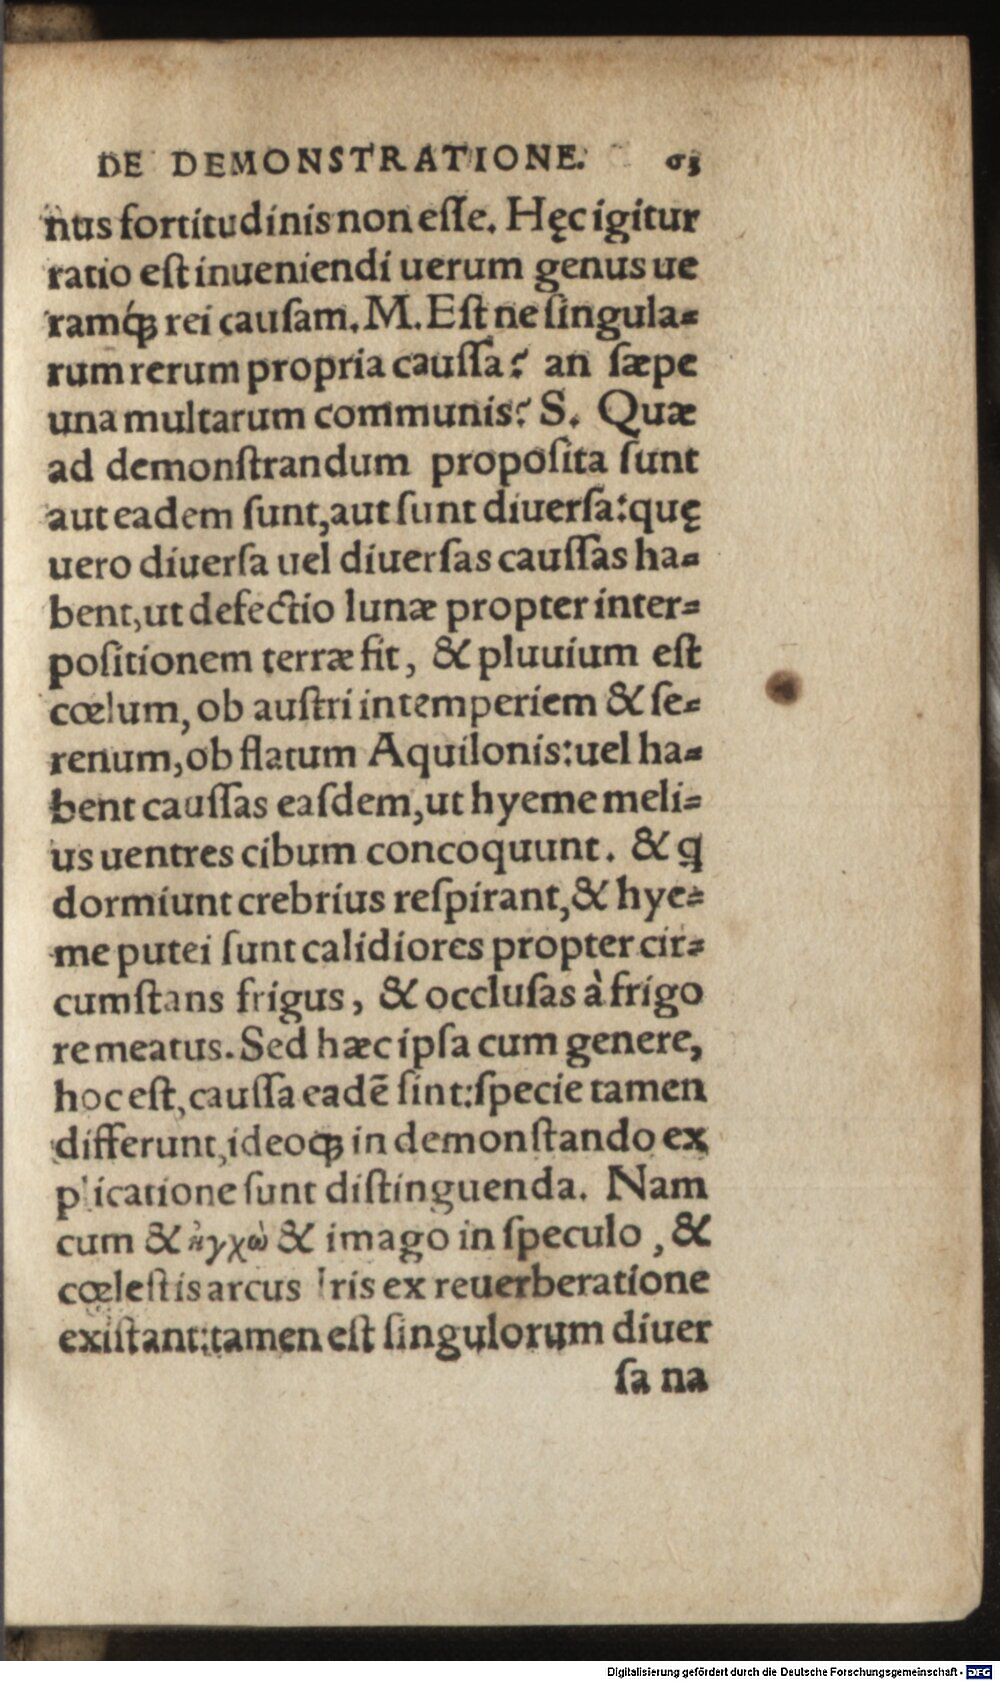 DE DEMONSTRATIONE. 63
nus fortitudinis non eſſe. Hęc igitur
ratio eſt inueniendi uerum genus ue
ramꝙ́ rei cauſam. M. Eſt ne ſingula-
rum rerum propria cauſſa? an ſæpe
una multarum communis? S. Quæ
ad demonſtrandum propoſita ſunt
aut eadem ſunt, aut ſunt diuerſa: quę
uero diuerſa uel diuerſas cauſſas ha-
bent, ut defectio lunæ propter inter-
poſitionem terræ fit, & pluuium eſt
cœlum, ob auſtri intemperiem & ſe-
renum, ob flatum Aquilonis: uel ha-
bent cauſſas eaſdem, ut hyeme meli-
us uentres cibum concoquunt. & ꝗ
dormiunt crebrius reſpirant, & hye-
me putei ſunt calidiores propter cir-
cumſtans frigus, & occluſas à frigo
re meatus. Sed hæc ipſa cum genere,
hoc eſt, cauſſa eadē ſint: ſpecie tamen
differunt, ideoꝙ in demonſtando ex
plicatione ſunt diſtinguenda. Nam
cum & ἠχὼ & imago in ſpeculo, &
cœleſtis arcus Iris ex reuerberatione
exiſtant: tamen eſt ſingulorum diuer
ſa na
Digitalisierung gefördert durch die Deutsche Forschungsgemeinschaft - DFG